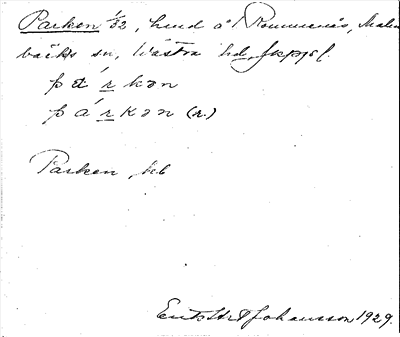 Parken 1/32, hmd å Rommanäs, Malm
bäcks sn, Västra hd, Jkpgs l.
párkən
párkən (r.)
Parken, jeb
Enl. Johansson 1929.